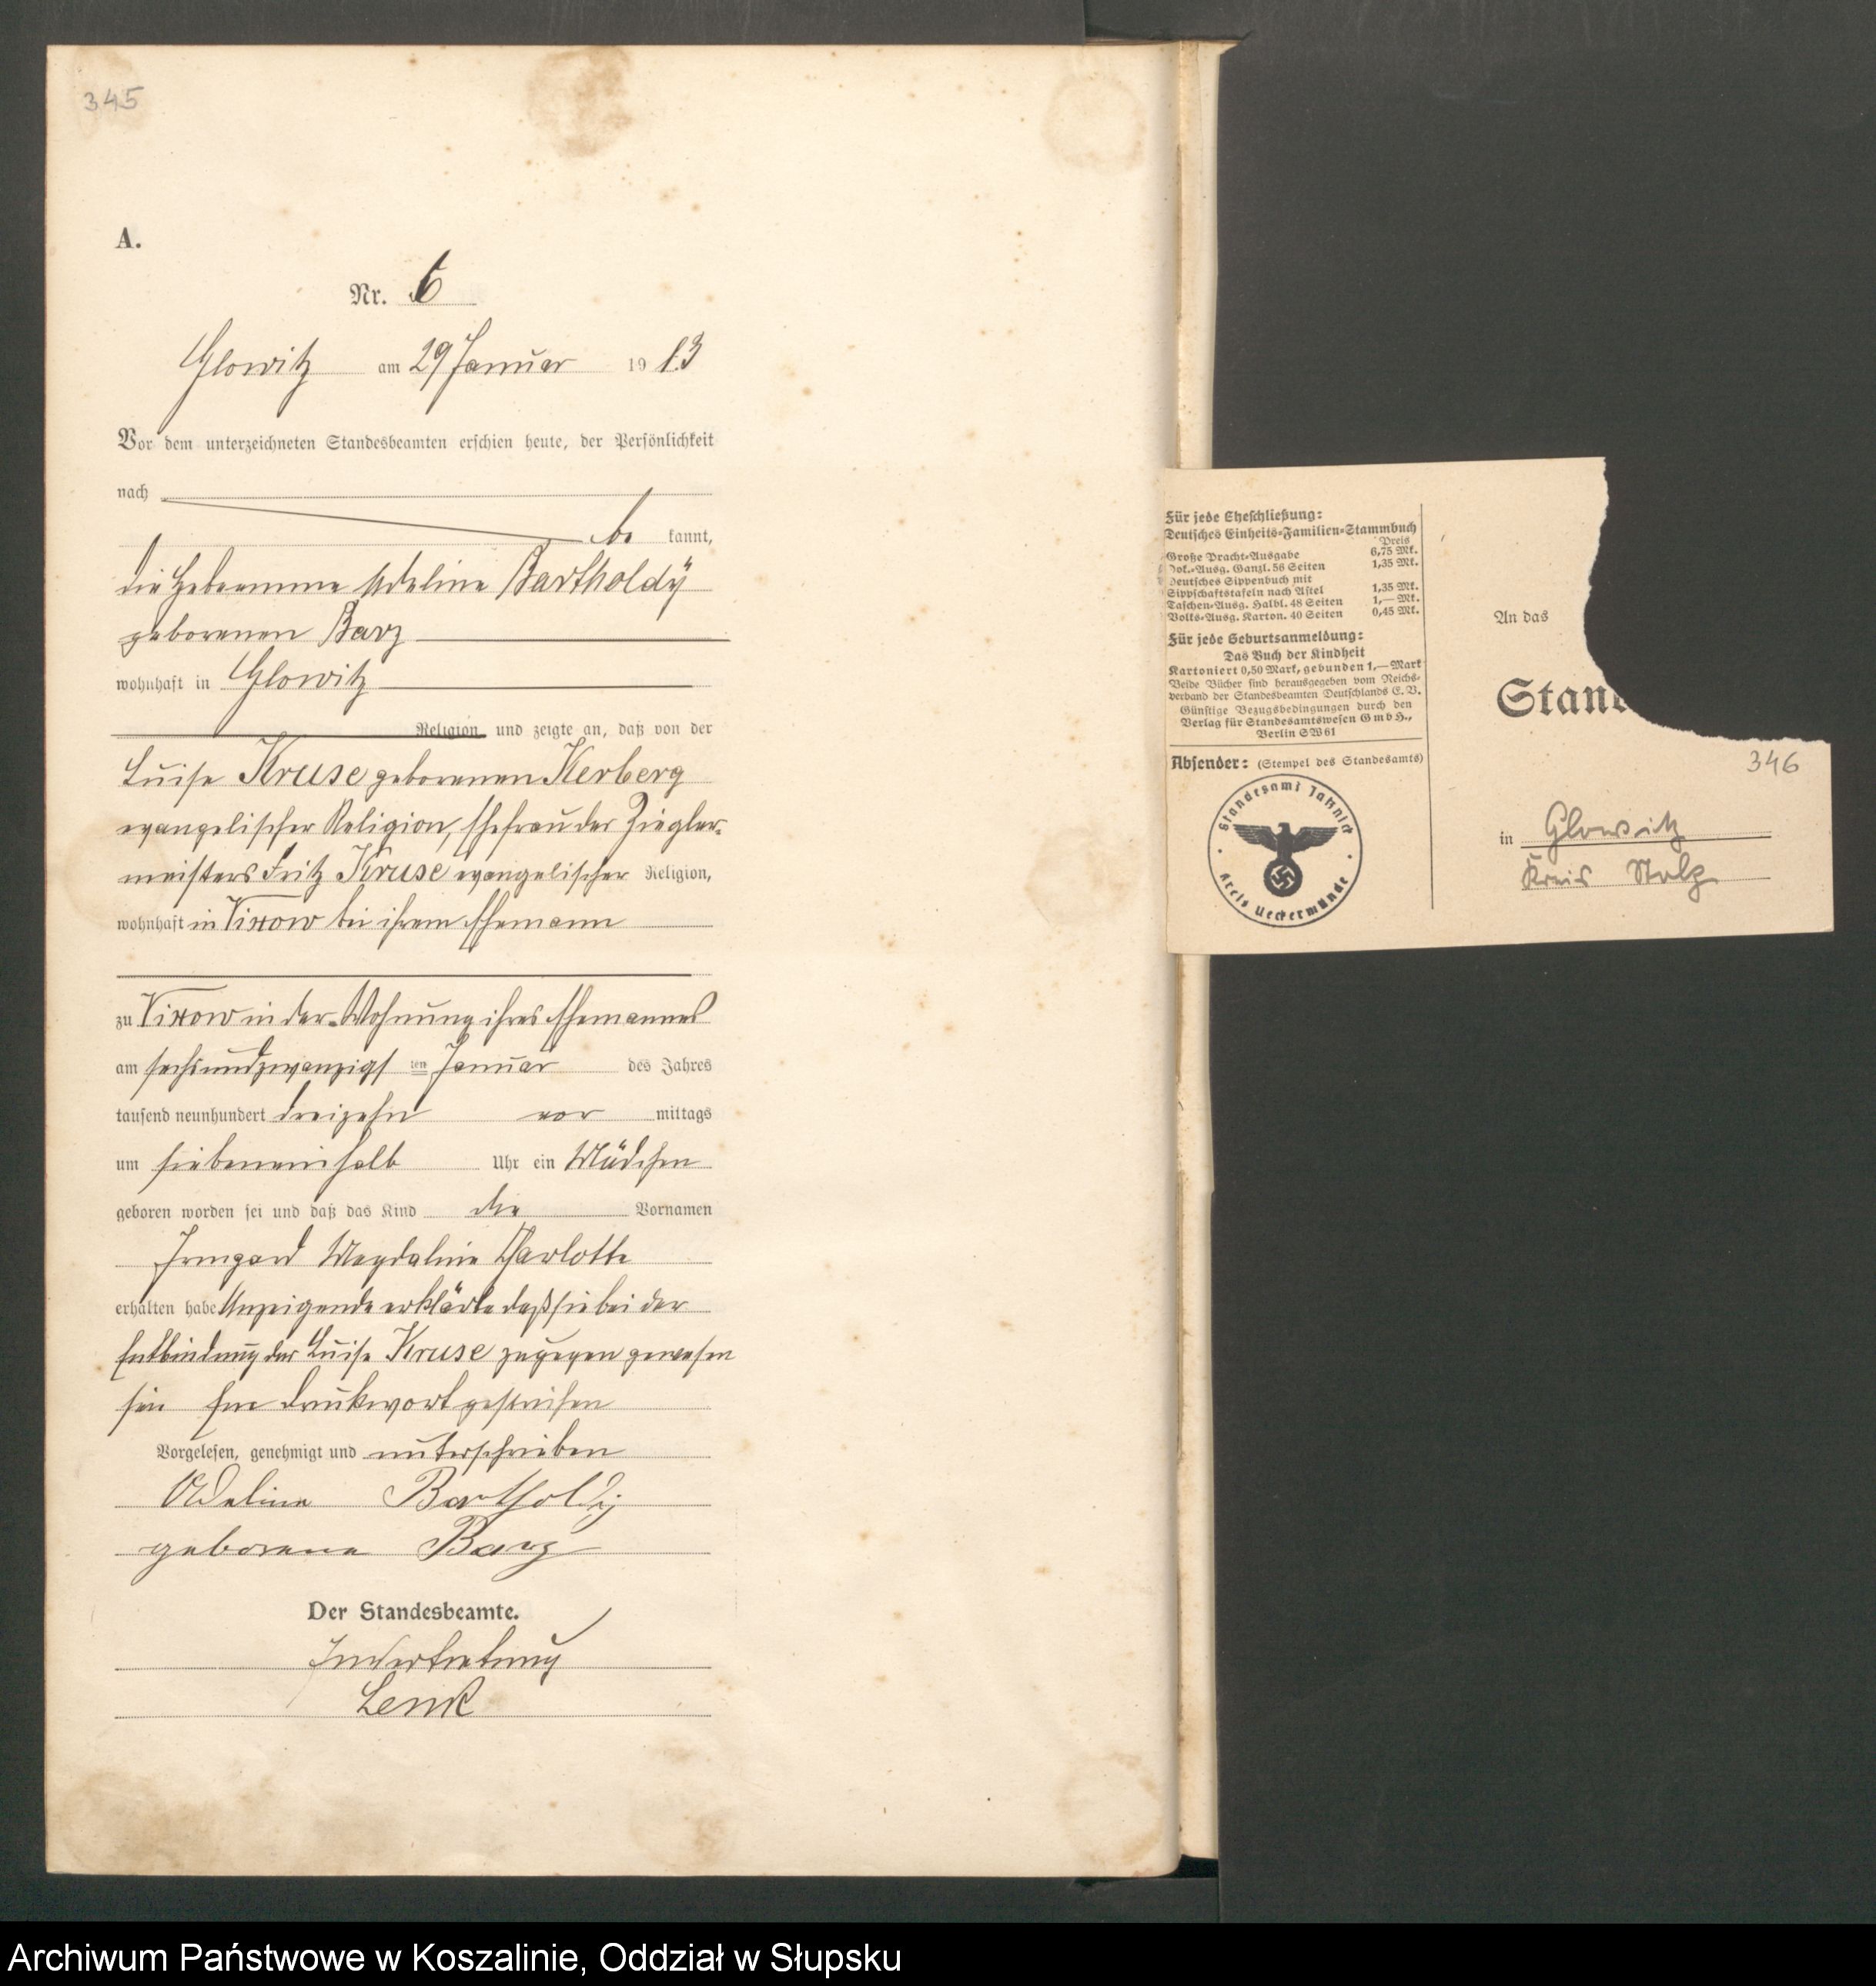 345
A.
Nr. 6
Glowitz am 29 Januar 1913
Vor dem unterzeichneten Standesbeamten erschien heute, der Persönlichkeit
nach
be kannt,
die Hebamme Adeline Bartholdÿ
geborenen Barz
wohnhaft in Glowitz
Religion und zeigte an, daß von der
Luise Kruse geborenen Kerberg
evangelischer Religion, Ehefrau des Ziegler-
meisters Fritz Kruse evangelischer Religion,
wohnhaft in Vixow bei ihrem Ehemann
zu Vixow in der Wohnung ihres Ehemannes
am sechsundzwanzigsten Januar des Jahres
tausend neunhundert dreizehn vor mittags
um siebeneinhalb Uhr ein Mädchen
geboren worden sei und daß das Kind die Vornamen
Irmgard Magdaline Charlotte
erhalten habe Anzeigende erklärte daß sie bei der
Entbindung der Luise Kruse zugegen gewesen
sei Ein Druckwort gestrichen
Vorgelesen, genehmigt und unterschrieben
Adeline Bartholdÿ
geborene Barz
Der Standesbeamte.
In Vertretung
Lenk
Für jede Eheschließung:
Deutsches Einheits-Familien-Stammbuch
Preis
Große Pracht-Ausgabe 6,75 Mk.
Dok.-Ausg. Ganzl. 56 Seiten 1,35 Mk.
Deutsches Sippenbuch mit
Sippschaftstafeln nach Astel 1,35 Mk.
Taschen-Ausg. Halbl. 48 Seiten 1,— Mk.
Volks-Ausg. Karton. 40 Seiten 0,45 Mk.
Für jede Geburtsanmeldung:
Das Buch der Kindheit
Kartoniert 0,50 Mark, gebunden 1,— Mark
Beide Bücher sind herausgegeben vom Reichs-
verband der Standesbeamten Deutschlands E. V.
Günstige Bezugsbedingungen durch den
Verlag für Standesamtswesen GmbH.,
Berlin SW 61
Absender: (Stempel des Standesamts)
Standesamt Jatznick
Kreis Ueckermünde
An das
Stand
346
in Glowitz
Kreis Stolp
Archiwum Państwowe w Koszalinie, Oddział w Słupsku